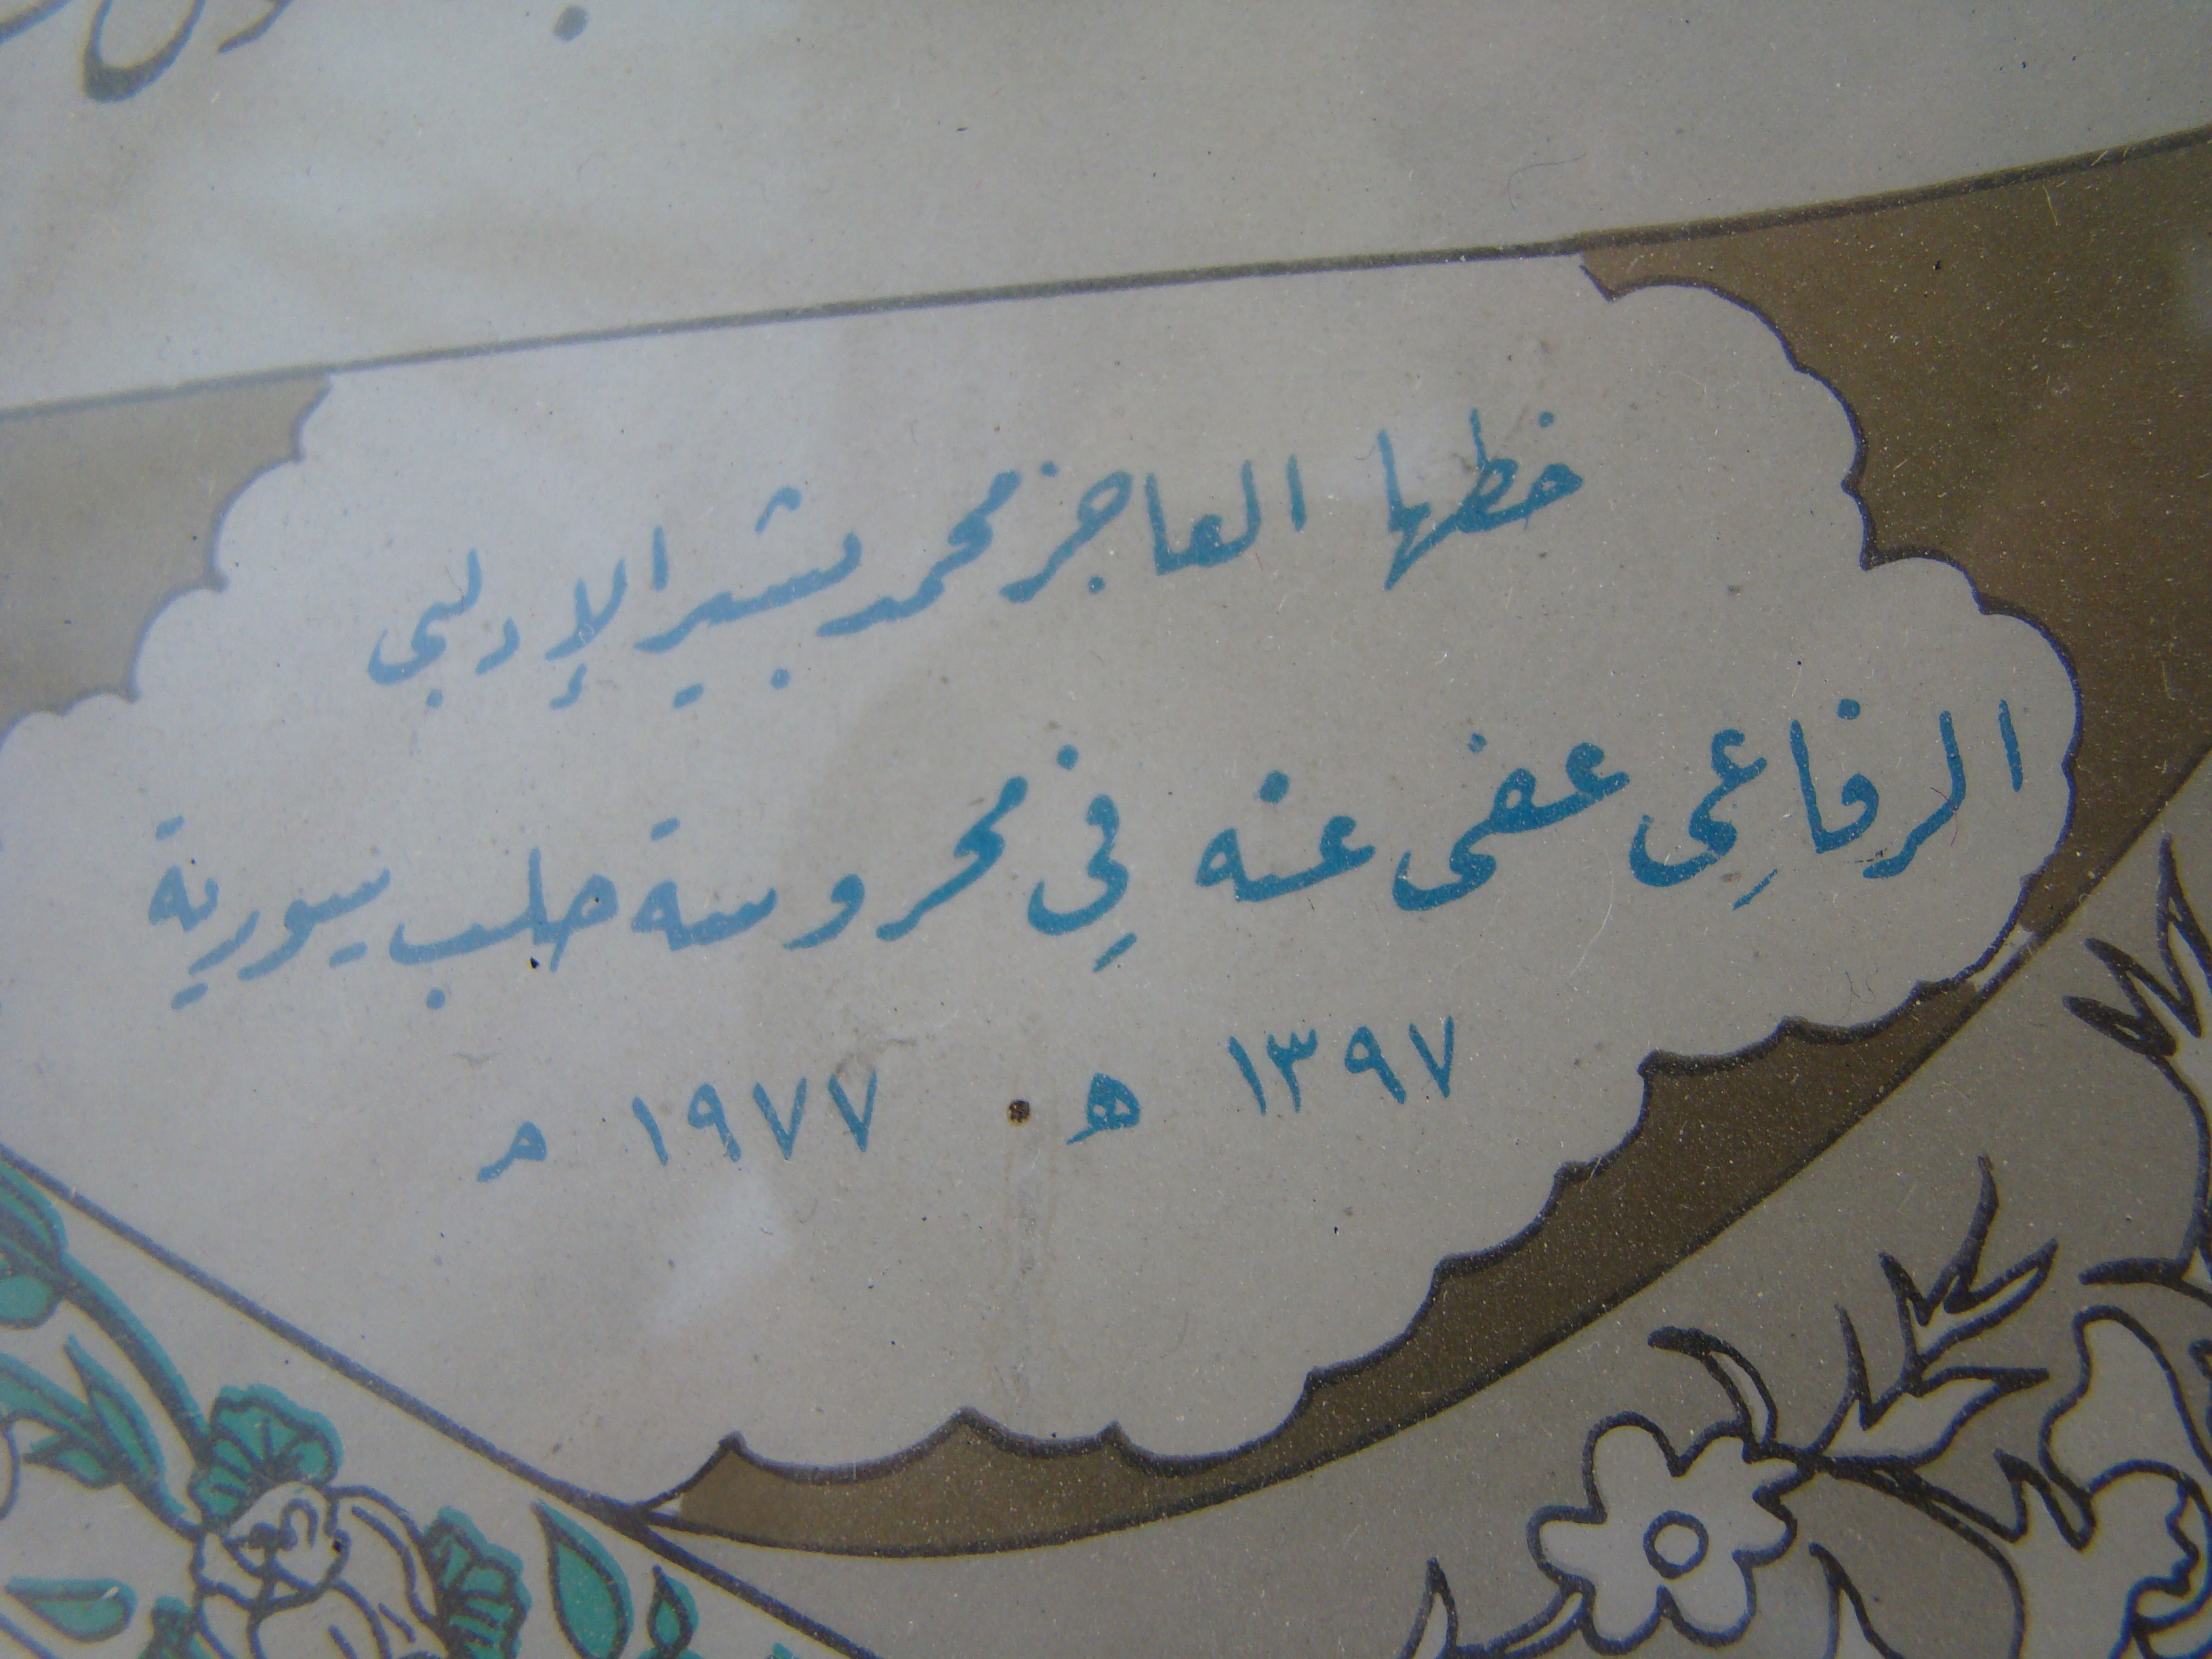 خطها العاجز محمد بشير الإدلبي
الرفاعِى عفى عنه فِي محروسة حلب سورية
١٣٩٧ ه . ١٩٧٧ م